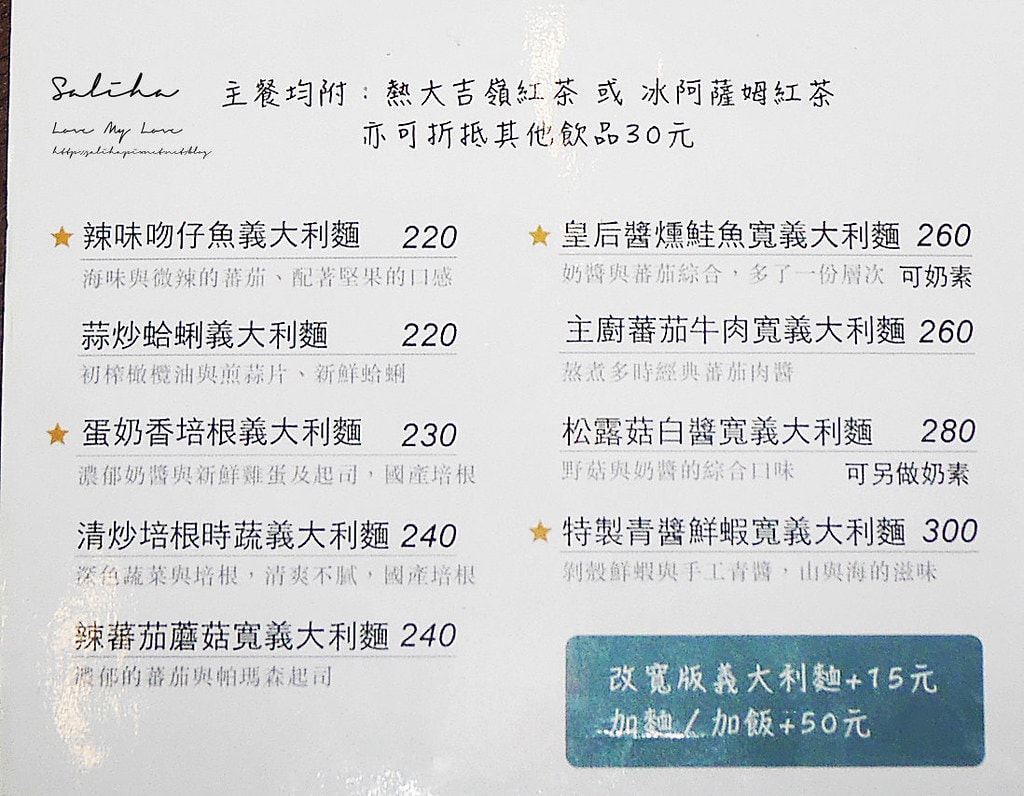 Saliha
Love My Love
主餐均附：熱大吉嶺紅茶 或 冰阿薩姆紅茶
亦可折抵其他飲品30元
辣味吻仔魚義大利麵 220
海味與微辣的蕃茄、配著堅果的口感
蒜炒蛤蜊義大利麵 220
初榨橄欖油與煎蒜片、新鮮蛤蜊
蛋奶香培根義大利麵 230
濃郁奶醬與新鮮雞蛋及起司，國產培根
清炒培根時蔬義大利麵 240
深色蔬菜與培根，清爽不膩，國產培根
辣蕃茄蘑菇寬義大利麵 240
濃郁的蕃茄與帕瑪森起司
皇后醬燻鮭魚寬義大利麵 260
奶醬與蕃茄綜合，多了一份層次 可奶素
主廚蕃茄牛肉寬義大利麵 260
熬煮多時經典蕃茄肉醬
松露菇白醬寬義大利麵 280
野菇與奶醬的綜合口味 可另做奶素
特製青醬鮮蝦寬義大利麵 300
剝殼鮮蝦與手工青醬，山與海的滋味
改寬版義大利麵+15元
加麵/加飯+50元